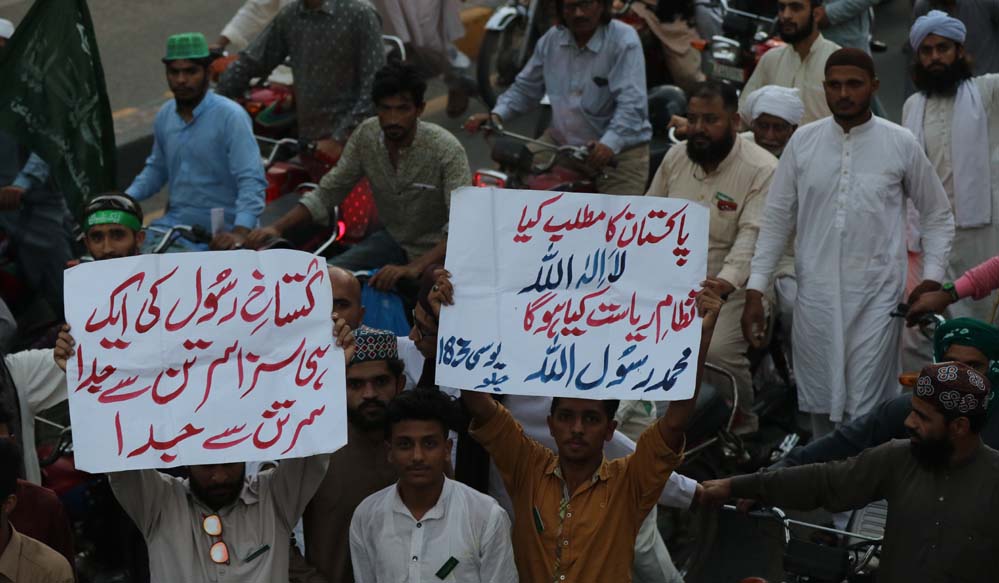 گستاخِ رسُول کی ایک
ہی سزا سر تن سے جُدا
سر تن سے جُدا
پاکستان کا مطلب کیا
لَا اِلٰہَ اللّٰہُ
نظامِ ریاست کیا ہوگا
محمد رسُول اللّٰہ
یوسی 183